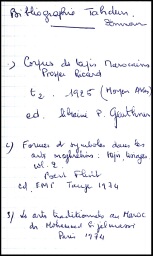 Bibliographie Tahden.
1) Corpus de tapis Marocains
Prosper Ricard
t2. 1925 (Moyen Atlas)
ed. librairie P. Geuthner
2) Formes et symboles dans les
arts maghrébins : tapis, tissages
vol. 2
Bert Flint
ed. EMI Tanger 1974
3/ Le arts traditionnels au Maroc
de Mohammed Sijelmassi
Paris 1974